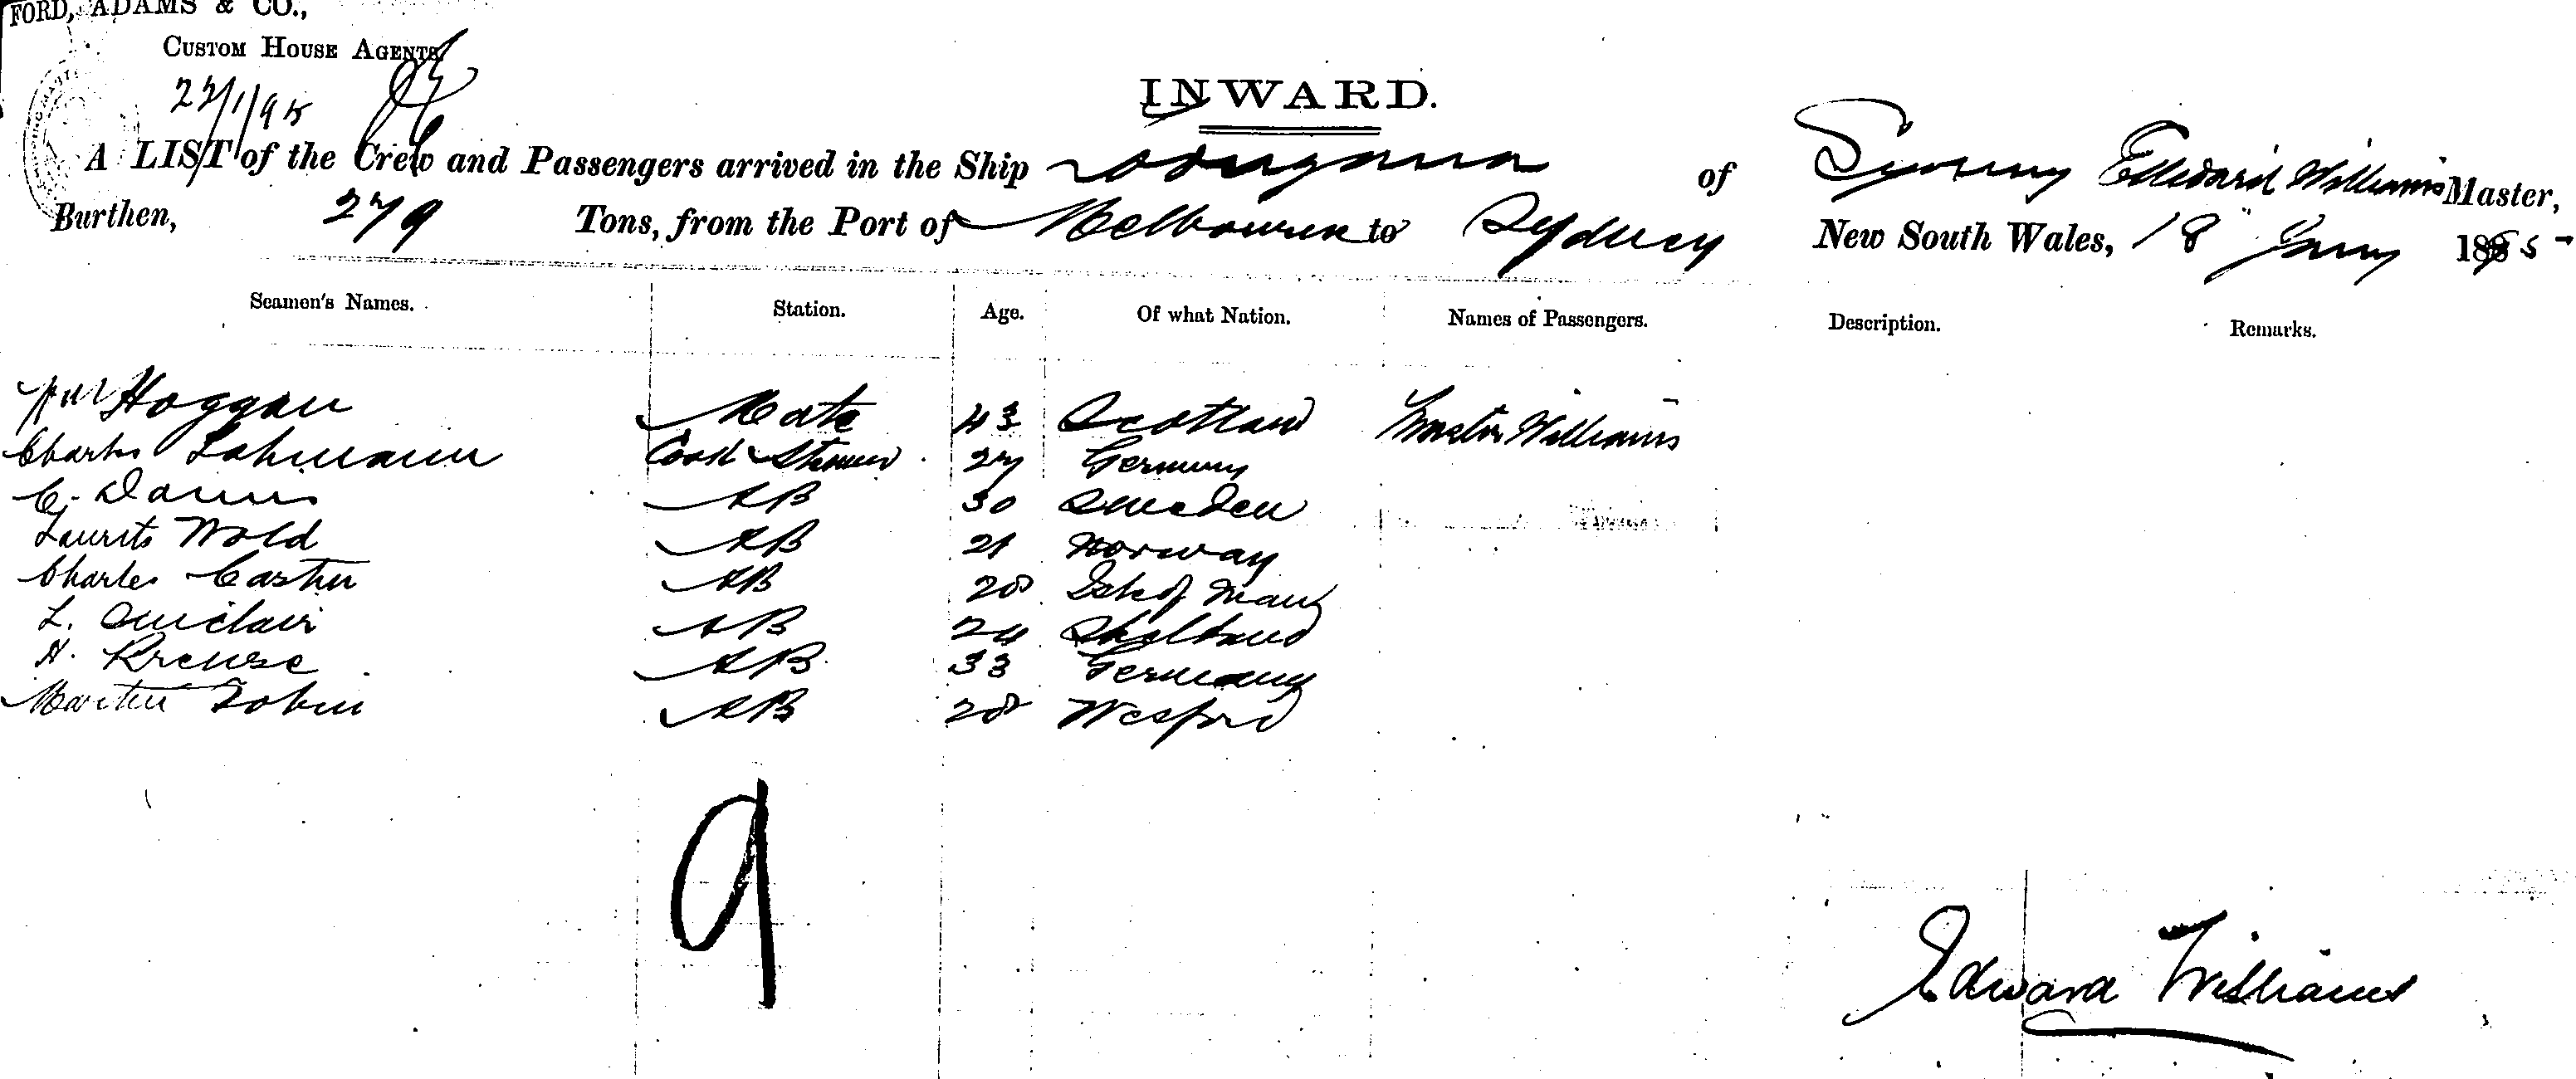 FORD, ADAMS & CO.,
CUSTOM HOUSE AGENTS
22/1/95
INWARD.
A LIST of the Crew and Passengers arrived in the Ship Woosung of Sydney Edward Williams Master,
Burthen, 279 Tons, from the Port of Melbourne to Sydney New South Wales, 18 Jany 1895
Seamen's Names. Station. Age. Of what Nation. Names of Passengers. Description. Remarks.
Hoggan Mate 43 Scotland Master Williams
Charles Lahmann Cook & Steward 27 Germany
C. AB 30 Sweden
Laurits Wold AB 21 Norway
Charles AB 28 Isle of Man
L. Sinclair AB 24 Shetland
H. Kreuse AB 33 Germany
Martin Tobin AB 28 Wexford
9
Edward Williams